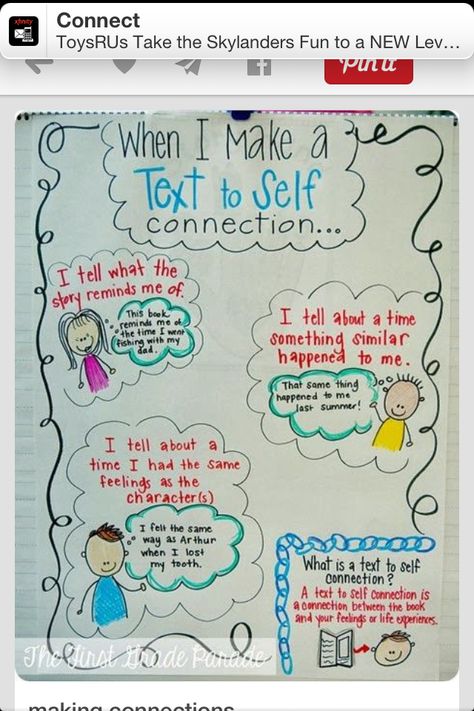 xfinity
Connect
ToysRUs Take the Skylanders Fun to a NEW Lev...
Pin it
When I make a
Text to Self
connection...
I tell what the
story reminds me of.
This book
reminds me of
the time I went
fishing with my
dad.
I tell about a time
something similar
happened to me.
That same thing
happened to me
last summer!
I tell about a
time I had the same
feelings as the
character(s)
I felt the same
way as Arthur
when I lost
my tooth.
What is a text to self
connection?
A text to self connection is
a connection between the book
and your feelings or life experiences.
The First Grade Parade
making connections